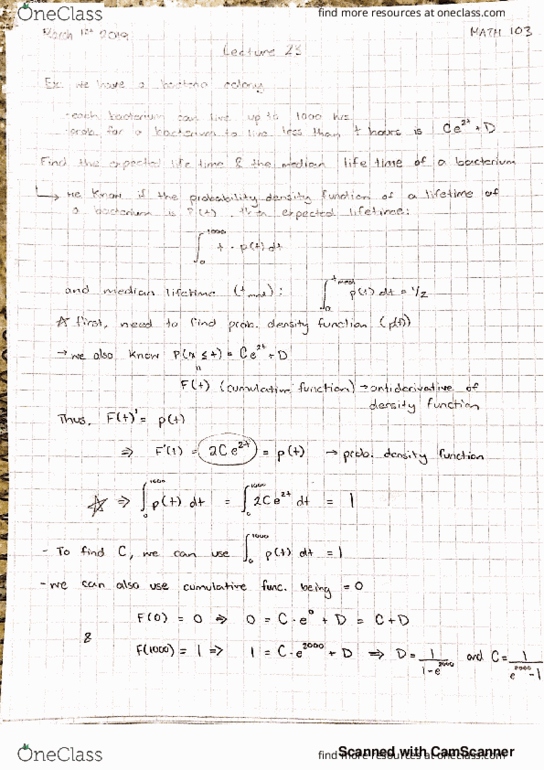 OneClass
find more resources at oneclass.com
March 1st 2019
MATH 103
Lecture 23
Ex: we have a bacteria colony
-each bacterium can live up to 1000 hrs
-prob. for a bacterium to live less than t hours is Ce^2t + D
Find the expected life time & the median life time of a bacterium
↳ We know if the probability density function of a lifetime of
a bacterium is P(t), then expected lifetime:
∫₀^1000 t · p(t) dt
and median lifetime (t_med): ∫₀^t_med p(t) dt = 1/2
☆ first, need to find prob. density function (p(t))
→ we also know P(x ≤ t) = Ce^2t + D
F(t) (cumulative function) → antiderivative of
density function
Thus, F(t)' = p(t)
⇒ F'(t) = 2Ce^2t = p(t) → prob. density function
☆ ⇒ ∫₀^1000 p(t) dt = ∫₀^1000 2Ce^2t dt = 1
- To find C, we can use ∫₀^1000 p(t) dt = 1
- we can also use cumulative func. being = 0
F(0) = 0 ⇒ 0 = C·e^0 + D = C + D
&
F(1000) = 1 ⇒ 1 = C·e^2000 + D ⇒ D = 1/(1-e^2000) and C = 1/(e^2000 - 1)
OneClass
find more resources at oneclass.com
Scanned with CamScanner